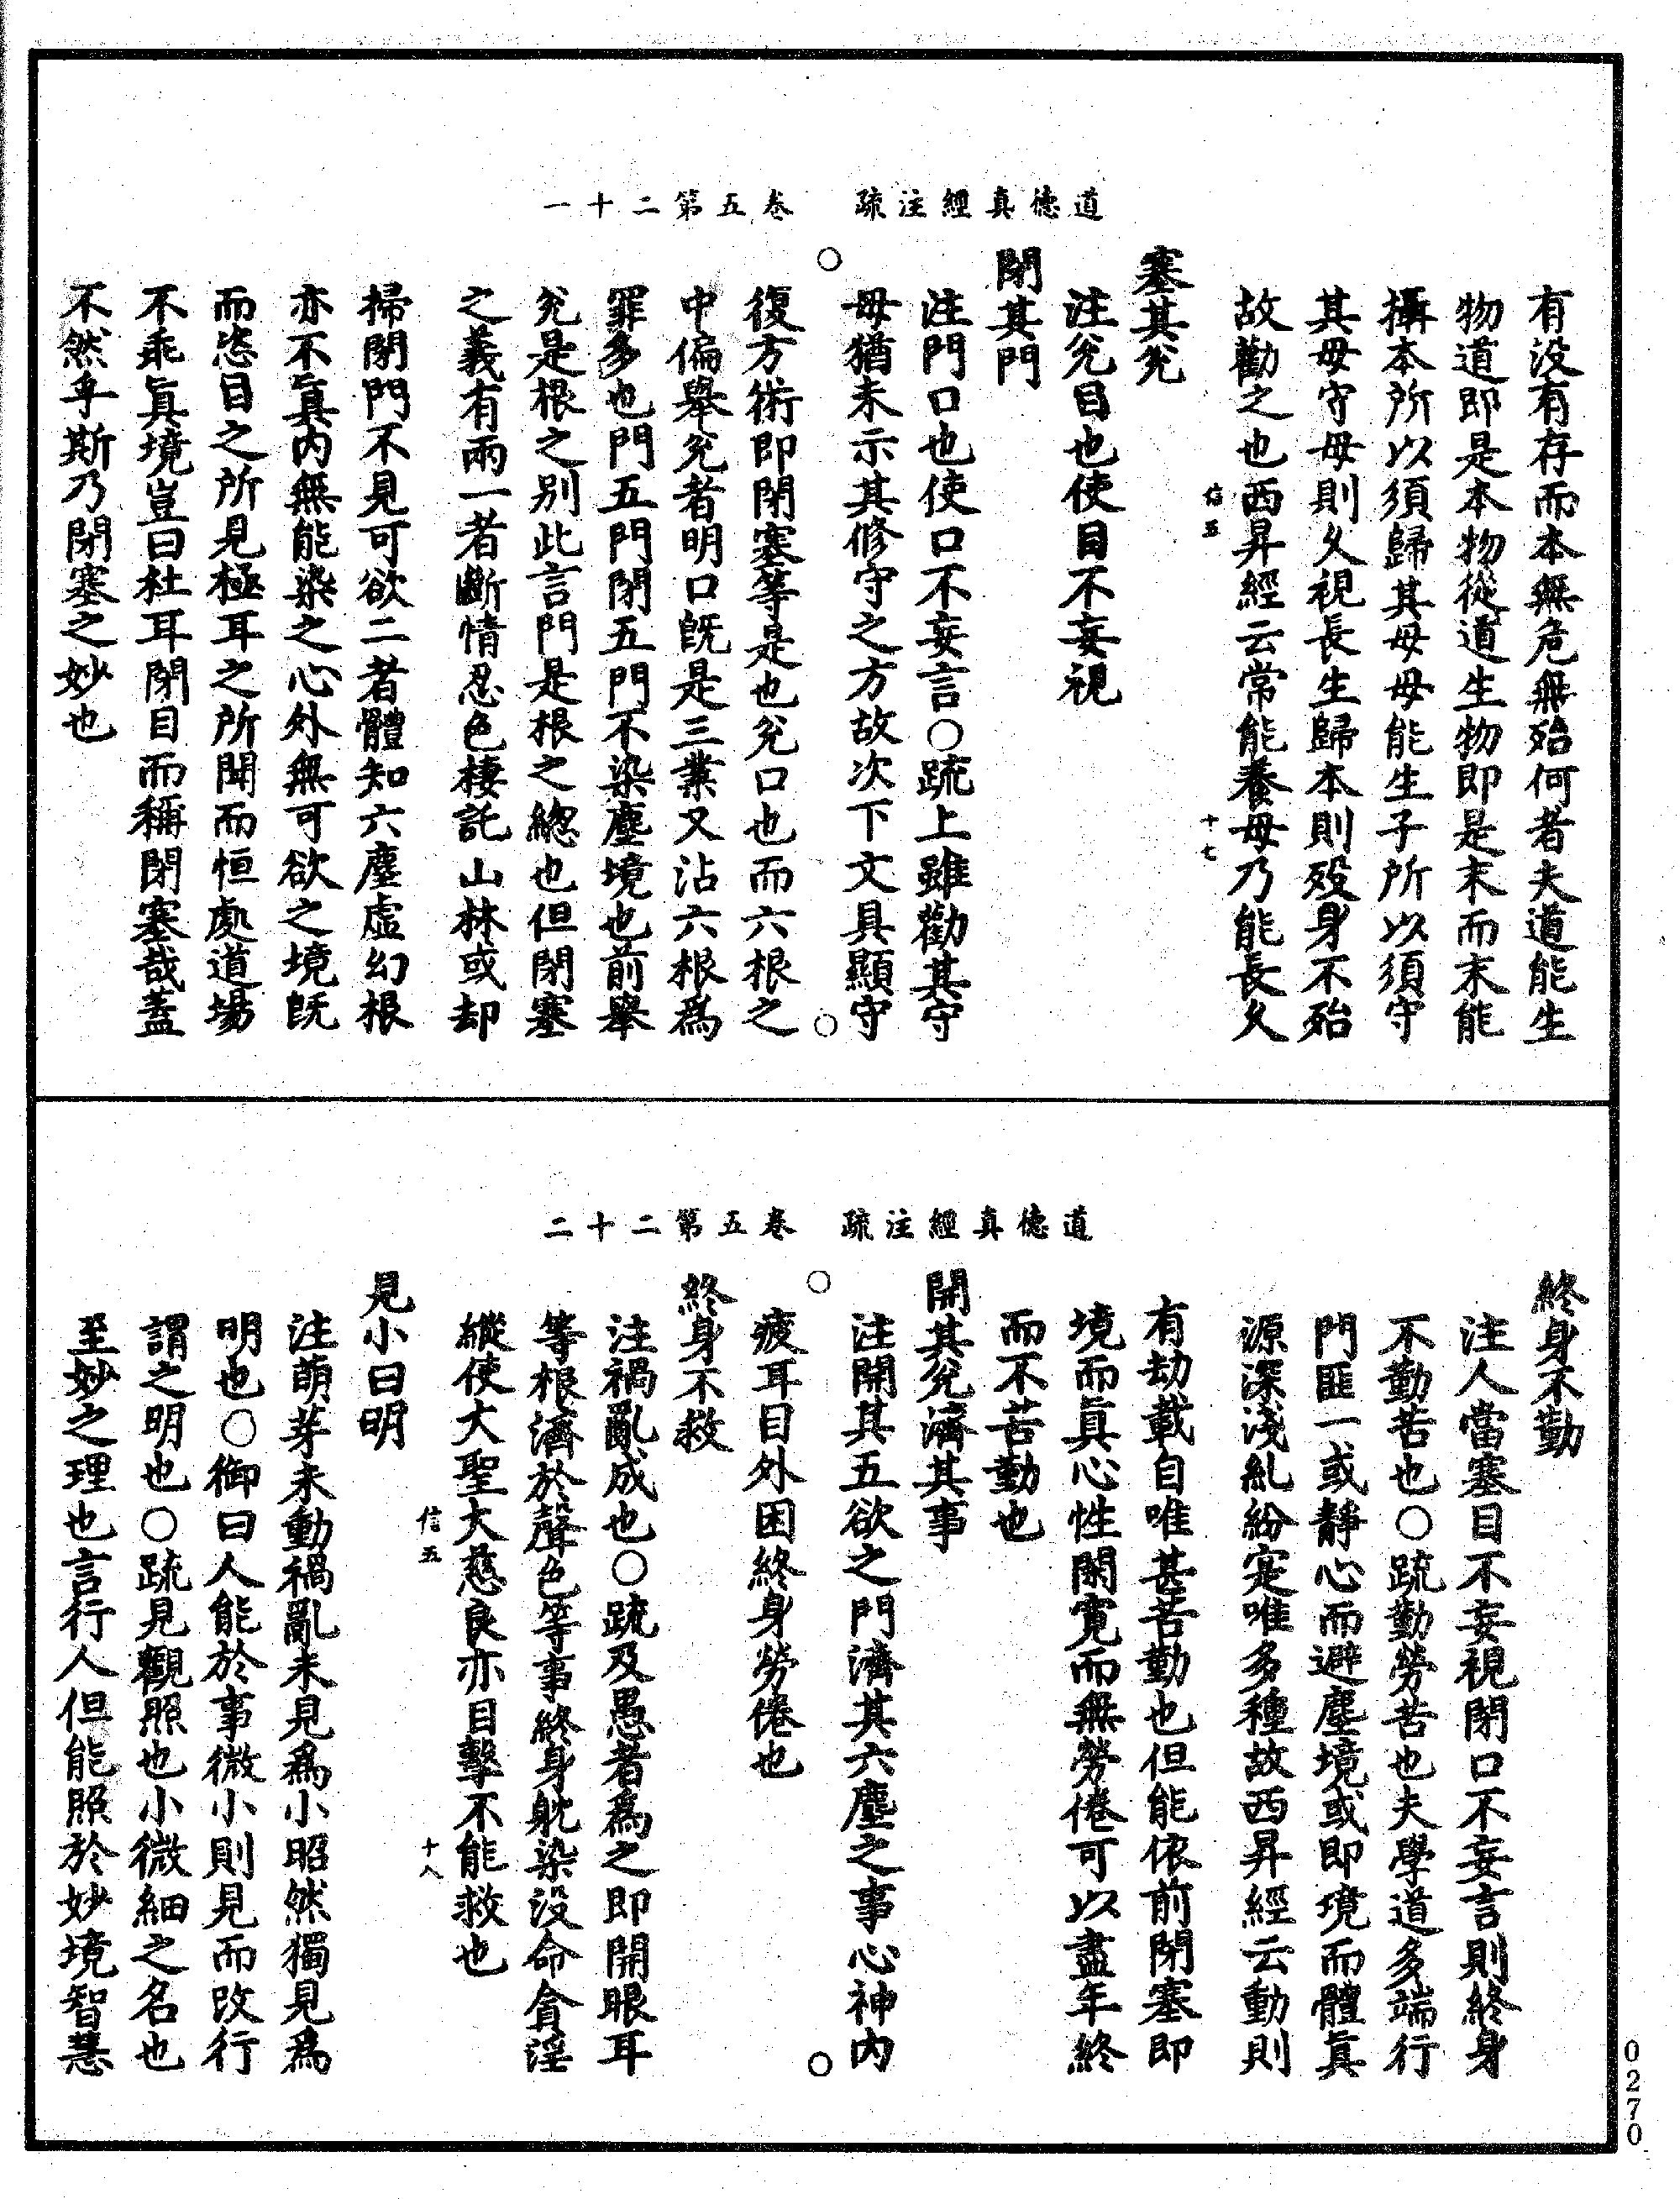 道德真經注疏　卷五第二十一
有没有存而本無危無殆何者夫道能生
物道即是本物從道生物即是末而末能
攝本所以須歸其母母能生子所以須守
其母守母則久視長生歸本則殁身不殆
故勸之也西昇經云常能養母乃能長久
信五　十七
塞其兊
注兊目也使目不妄視
閉其門
注門口也使口不妄言○疏上雖勸其守
母猶未示其修守之方故次下文具顯守
○　○
復方術即閉塞等是也兊口也而六根之
中偏舉兊者明口旣是三業又沾六根爲
罪多也門五門閉五門不染塵境也前舉
兊是根之别此言門是根之緫也但閉塞
之義有兩一者斷情忍色棲託山林或却
掃閉門不見可欲二者體知六塵虛幻根
亦不眞内無能染之心外無可欲之境旣
而恣目之所見極耳之所聞而恒處道場
不乖眞境豈曰杜耳閉目而稱閉塞哉蓋
不然乎斯乃閉塞之妙也
道德真經注疏　卷五第二十二
終身不勤
注人當塞目不妄視閉口不妄言則終身
不勤苦也○疏勤勞苦也夫學道多端行
門匪一或靜心而避塵境或即境而體眞
源深淺紜紛寔唯多種故西昇經云動則
有劫載自唯甚苦勤也但能依前閉塞即
境而眞心性閑寬而無勞倦可以盡年終
而不苦勤也
開其兊濟其事
注開其五欲之門濟其六塵之事心神内
○　○
疲耳目外困終身勞倦也
終身不救
注禍亂成也○疏及愚者爲之即開眼耳
等根濟於聲色等事終身躭染没命貪淫
縱使大聖大慈良亦目擊不能救也
信五　十八
見小曰明
注萌芽未動禍亂未見爲小昭然獨見爲
明也○御曰人能於事微小則見而改行
謂之明也○疏見觀照也小微細之名也
至妙之理也言行人但能照於妙境智慧
0270